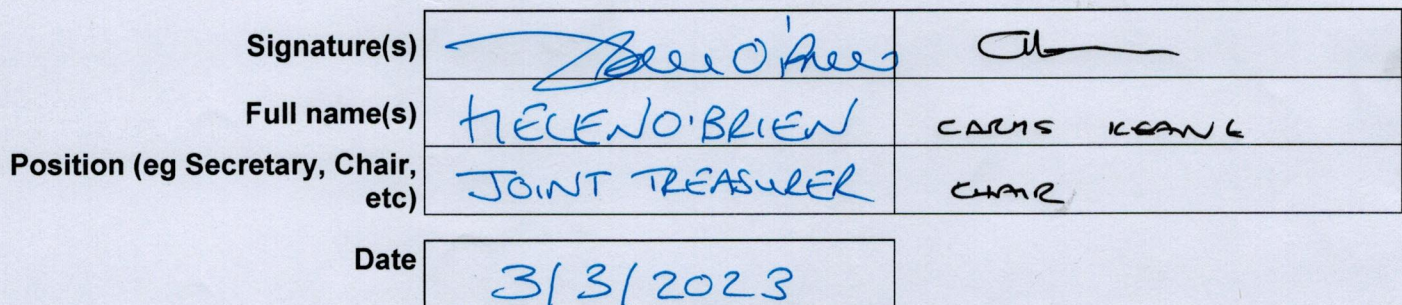 Signature(s)
Full name(s) HELEN O'BRIEN KEANE
Position (eg Secretary, Chair,
etc) JOINT TREASURER CHAIR
Date 3/3/2023